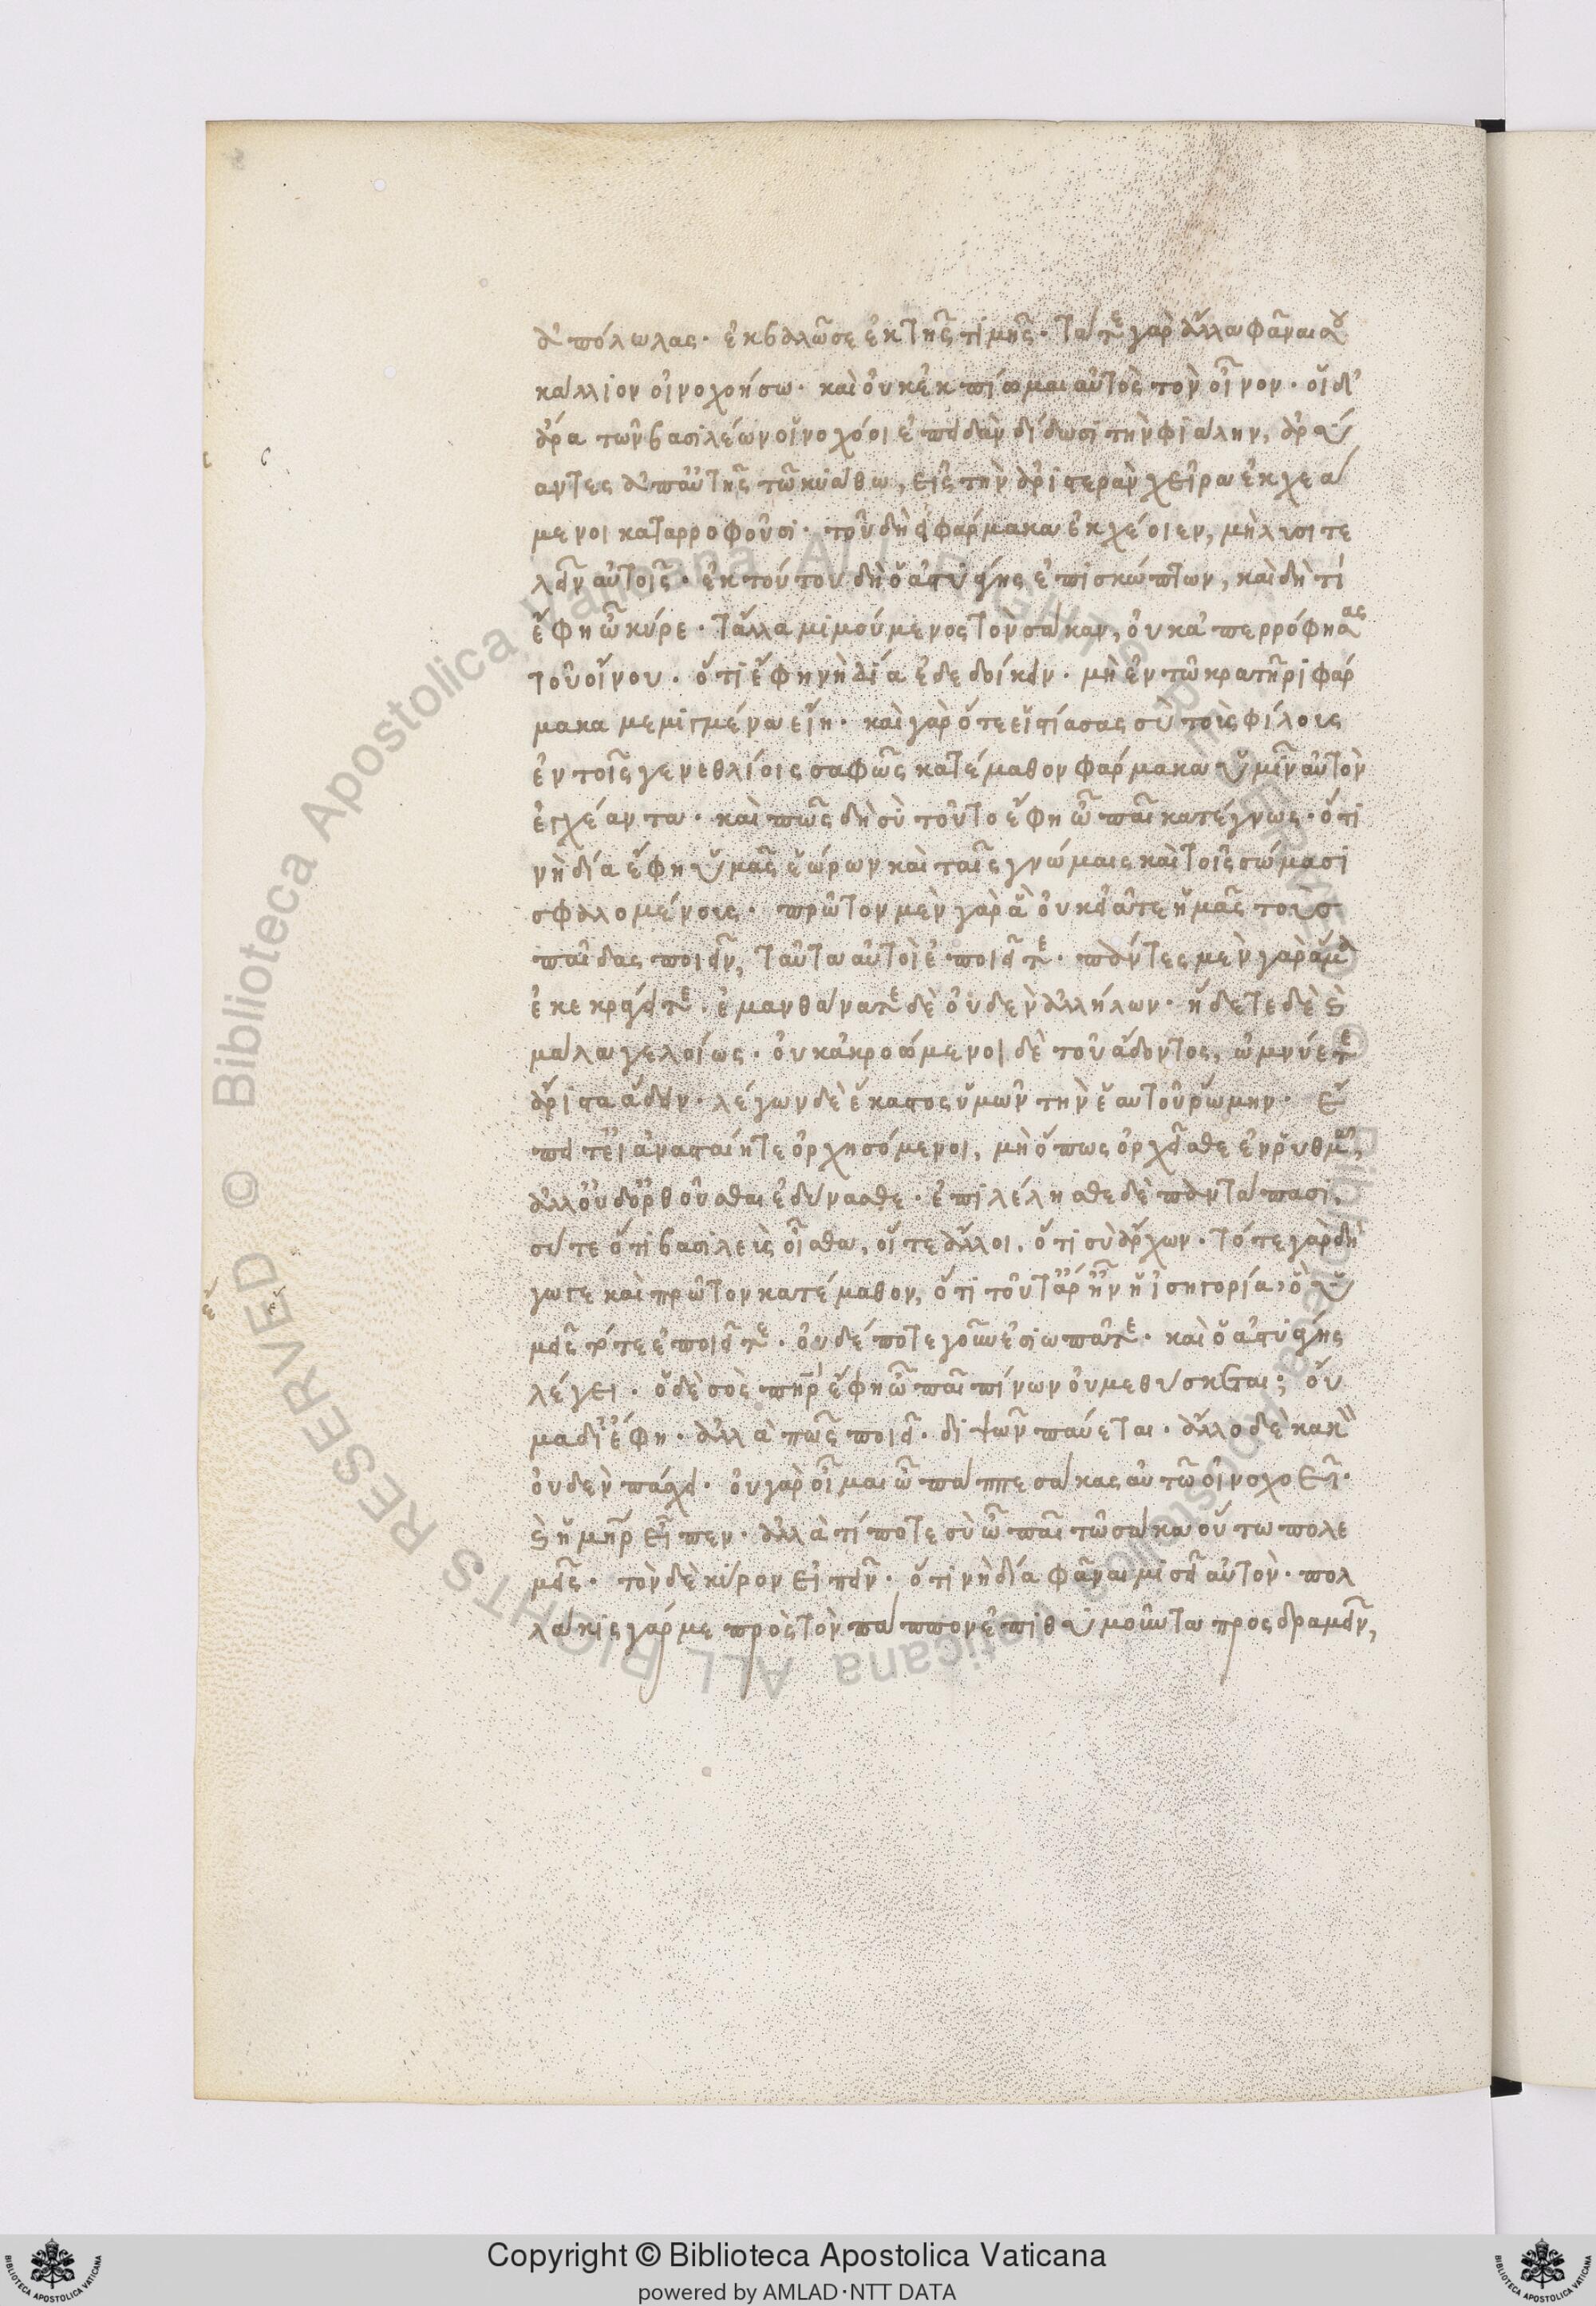 ἀπόλωλας· ἐκβαλῶ σε ἐκ τῆς τιμῆς· τά τε γὰρ ἄλλα φᾶναι σοῦ
κάλλιον οἰνοχοήσω· καὶ οὐκ ἐκπίωμαι αὐτὸς τὸν οἶνον· οἱ δ'
ἄρα τῶν βασιλέων οἰνοχόοι ἐπειδὰν διδῶσι τὴν φιάλην, ἀρύ
σαντες ἀπ' αὐτῆς τῶ κυάθω, εἰς τὴν ἀριστερὰν χεῖρα ἐκχεά
μενοι καταρροφοῦσι· τοῦ δὴ εἰ φάρμακα ἐκχέοιεν, μὴ λυσιτε
λεῖν αὐτοῖς· ἐκ τούτου δὴ ὁ ἀστυάγης ἐπισκώπτων, καὶ δὴ τί
ἔφη ὦ κῦρε· τἄλλα μιμούμενος τὸν σάκαν, οὐκ ἀπερρόφησας
τοῦ οἴνου· ὅτι ἔφη νὴ δία ἐδεδοίκειν· μὴ ἐν τῶ κρατῆρι φάρ
μακα μεμιγμένα εἴη· καὶ γὰρ ὅτε εἱστίασας σὺ τοὺς φίλους
ἐν τοῖς γενεθλίοις σαφῶς κατέμαθον φάρμακα ὑμῖν αὐτὸν
ἐγχέαντα· καὶ πῶς δὴ σὺ τοῦτο ἔφη ὦ παῖ κατέγνως· ὅτι
νὴ δία ἔφη ὑμᾶς ἑώρων καὶ ταῖς γνώμαις καὶ τοῖς σώμασι
σφαλλομένους· πρῶτον μὲν γὰρ ἃ οὐκ ἐᾶτε ἡμᾶς τοὺς
παῖδας ποιεῖν, ταῦτα αὐτοὶ ἐποιεῖτε· πάντες μὲν γὰρ ἅμα
ἐκεκράγειτε· ἐμανθάνατε δὲ οὐδὲν ἀλλήλων· ἤδετε δὲ καὶ
μάλα γελοίως· οὐκ ἀκροώμενοι δὲ τοῦ ἄδοντος, ὠμνύετε
ἄριστα ἄδειν· λέγων δὲ ἕκαστος ὑμῶν τὴν ἑαυτοῦ ῥώμην· ἔ
πειτ' εἰ ἀνασταίητε ὀρχησόμενοι, μὴ ὅπως ὀρχεῖσθαι ἐν ῥυθμῶ,
ἀλλ' οὐδ' ὀρθοῦσθαι ἐδύνασθε· ἐπιλέλησθε δὲ παντάπασι,
σύ τε ὅτι βασιλεὺς οἶσθα, οἵ τε ἄλλοι, ὅτι σὺ ἄρχων· τότε γὰρ δὴ
γωγε καὶ πρῶτον κατέμαθον, ὅτι τοῦτ' ἄρ' ἦν ἡ ἰσηγορία, ὃ ὑ
μεῖς τότε ἐποιεῖτε· οὐδέποτε γοῦν ἐσιωπᾶτε· καὶ ὁ ἀστυάγης
λέγει· ὁ δὲ σὸς πατὴρ ἔφη ὦ παῖ πίνων οὐ μεθύσκεται; οὐ
μὰ δί' ἔφη· ἀλλὰ πῶς ποιεῖ· διψῶν παύεται· ἄλλο δὲ κακὸν
οὐδὲν πάσχει· οὐ γὰρ οἶμαι ὦ πάππε σάκας αὐτῶ οἰνοχοεῖ·
καὶ ἡ μήτηρ εἶπεν· ἀλλὰ τί ποτε σὺ ὦ παῖ τῶ σάκα οὕτω πολε
μεῖς· τὸν δὲ κῦρον εἰπεῖν· ὅτι νὴ δία φᾶναι μισεῖ αὐτὸν· πολ
λάκις γάρ με πρὸς τὸν πάππον ἐπιθυμοῦντα προσδραμεῖν,
Copyright © Biblioteca Apostolica Vaticana
powered by AMLAD·NTT DATA